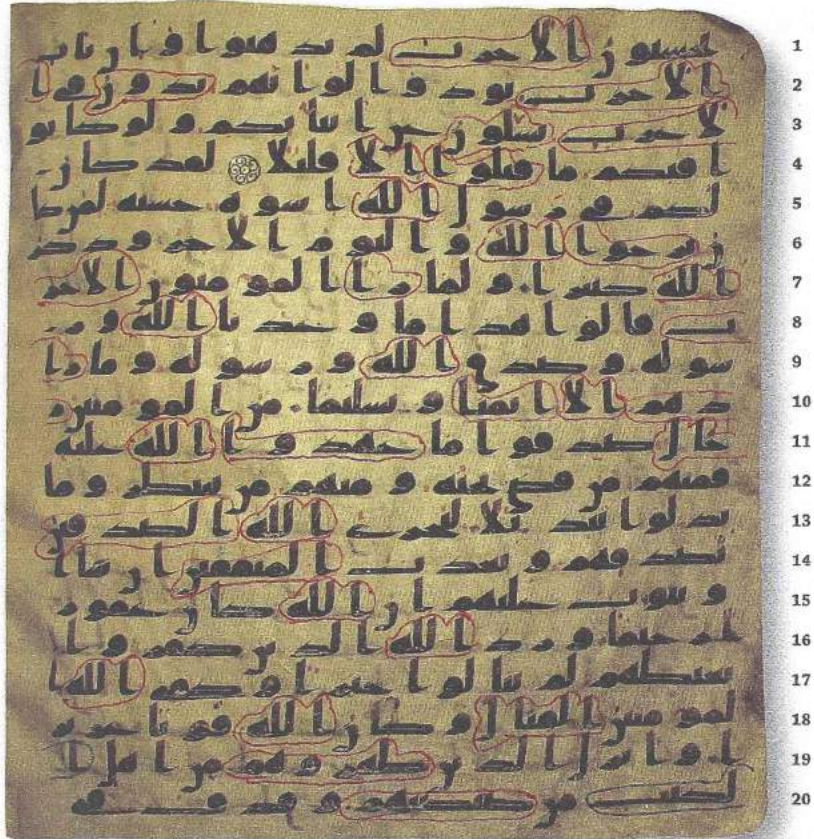 1 يحسبون الاحزب لم يذهبوا وان يات
2 الاحزب يودوا لو انهم بدون في ا
3 لاعرب يسلون عن انبائكم ولو كانو
4 ا فيكم ما قتلوا الا قليلا لقد كان
5 لكم في رسول الله اسوة حسنة لمن كا
6 ن يرجوا الله واليوم الاخر وذكر
7 الله كثيرا ولما را المومنون الاحز
8 ب قالوا هذا ما وعدنا الله ور
9 سوله وصدق الله ورسوله وما زا
10 دهم الا ايمنا وتسليما من المومنين ر
11 جال صدقوا ما عهدوا الله عليه
12 فمنهم من قضى نحبه ومنهم من ينتظر وما
13 بدلوا تبديلا ليجزي الله الصدقين
14 بصدقهم ويعذب المنفقين ان شا ا
15 و يتوب عليهم ان الله كان غفور
16 ا رحيما ورد الله الذين كفروا
17 بغيظهم لم ينالوا خيرا وكفى الله ا
18 لمومنين القتال وكان الله قويا عزيز
19 ا وانزل الذين ظهروهم من اهل ا
20 لكتب من صيصيهم وقذف في